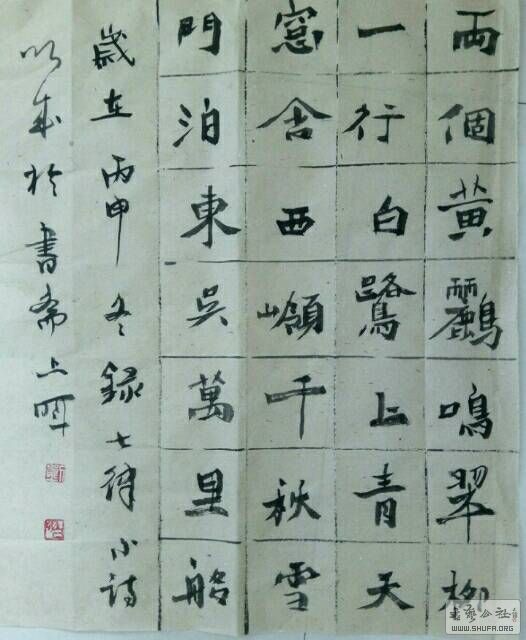 兩個黃鸝鳴翠柳
一行白鷺上青天
窓含西嶺千秋雪
門泊東吳萬里船
歲在丙申冬錄七律小詩
於書斋上
书艺公社
WWW.SHUFA.ORG